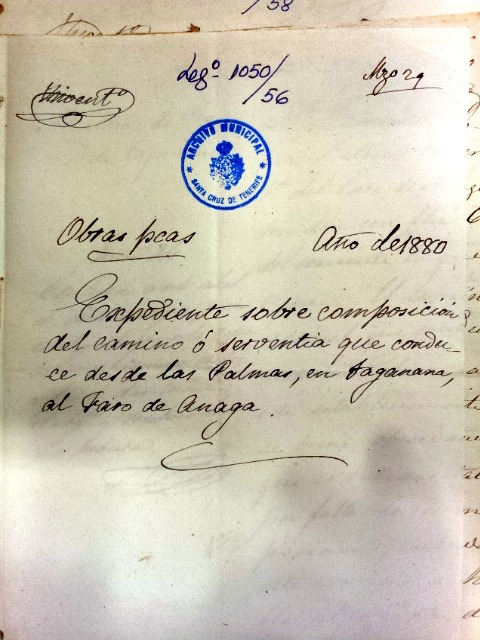 58
Legº 1050/
56
Mzo 29
ARCHIVO MUNICIPAL
SANTA CRUZ DE TENERIFE
Obras pcas
Año de 1880
Expediente sobre composición
del camino ó serventia que condu-
ce desde las Palmas, en Taganana,
al Faro de Anaga.